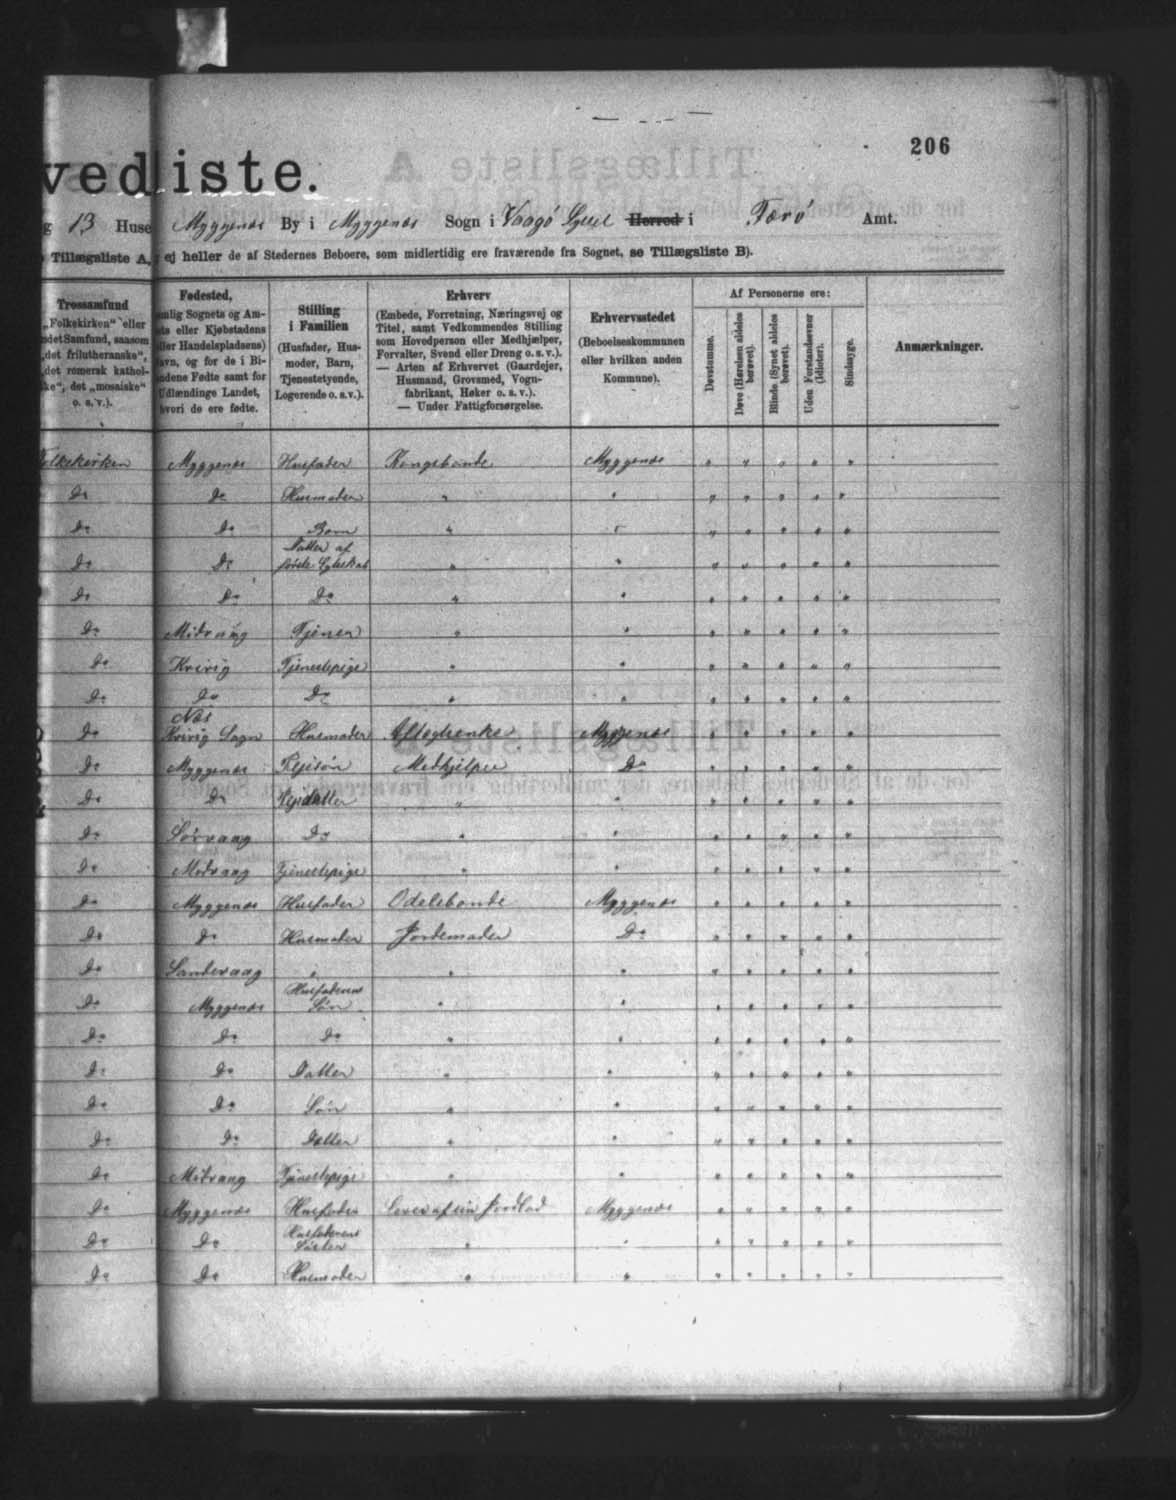 206
vedliste.
g 13 Huse Myggenæs By i Myggenæs Sogn i Vaagø Syssel Herred i Færø Amt.
Tillægsliste A, ej heller de af Stedernes Beboere, som midlertidig ere fraværende fra Sognet, se Tillægsliste B).
Trossamfund
„Folkekirken“ eller
ndet Samfund, saasom
„det frilutheranske“,
„det romersk kathol-
ke“, det „mosaiske“
o. s. v.).
Fødested,
mlig Sognets og Am-
ts eller Kjøbstadens
ller Handelspladsens)
avn, og for de i Bi-
ndene Fødte samt for
Udlændinge Landet,
hvori de ere fødte.
Stilling
i Familien
(Husfader, Hus-
moder, Barn,
Tjenestetyende,
Logerende o. s. v.).
Erhverv
(Embede, Forretning, Næringsvej og
Titel, samt Vedkommendes Stilling
som Hovedperson eller Medhjælper,
Forvalter, Svend eller Dreng o. s. v.).
— Arten af Erhvervet (Gaardejer,
Husmand, Grovsmed, Vogn-
fabrikant, Høker o. s. v.).
— Under Fattigforsørgelse.
Erhvervsstedet
(Beboelseskommunen
eller hvilken anden
Kommune).
Af Personerne ere:
Døvstumme.
Døve (Hørelsen aldeles
berøvet).
Blinde (Synet aldeles
berøvet).
Uden Forstandsevner
(Idioter).
Sindssyge.
Anmærkninger.
Folkekirken Myggenæs Husfader Kongsbonde Myggenæs " " " " "
Do Do Husmoder " " " " " " "
Do Do Barn " " " " " " "
Do Do Datter af
første Ægteskab " " " " " " "
Do Do Do " " " " " " "
Do Midvaag Tjener " " " " " " "
Do Kvivig Tjenestepige " " " " " " "
Do Do Do " " " " " " "
Næs
Do Kvivig Sogn Husmoder Aftægtsenke Myggenæs " " " " "
Do Myggenæs Plejesøn Medhjelper Do " " " " "
Do Do Plejedatter " " " " " " "
Do Sørvaag Do " " " " " " "
Do Midvaag Tjenestepige " " " " " " "
Do Myggenæs Husfader Odelsbonde Myggenæs " " " " "
Do Do Husmoder Jordemoder Do " " " " "
Do Sandevaag " " " " " " " "
Do Myggenæs Husfaderens
Søn " " " " " " "
Do Do Do " " " " " " "
Do Do Datter " " " " " " "
Do Do Søn " " " " " " "
Do Do Datter " " " " " " "
Do Midvaag Tjenestepige " " " " " " "
Do Myggenæs Husfader Lever af sin Jordlod Myggenæs " " " " "
Do Do Husfaderens
Søster " " " " " " "
Do Do Husmoder " " " " " " "